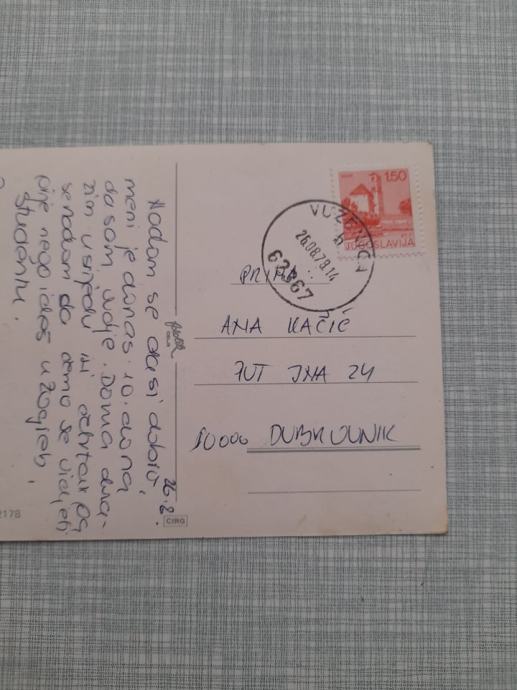 26.8.
Nadam se da si dobro,
meni je danas 10. dana
da sam ovdje. Doma dola-
zim u srijedu ili četvrtak pa
se nadam da ćemo se vidjeti
prije nego ideš u Zagreb,
studentu.
2178
CIRO
1.50
JUGOSLAVIJA
VUZENICA
b
26.08.78.14
62367
ANA KAČIĆ
PUT JNA 24
50000 DUBROVNIK